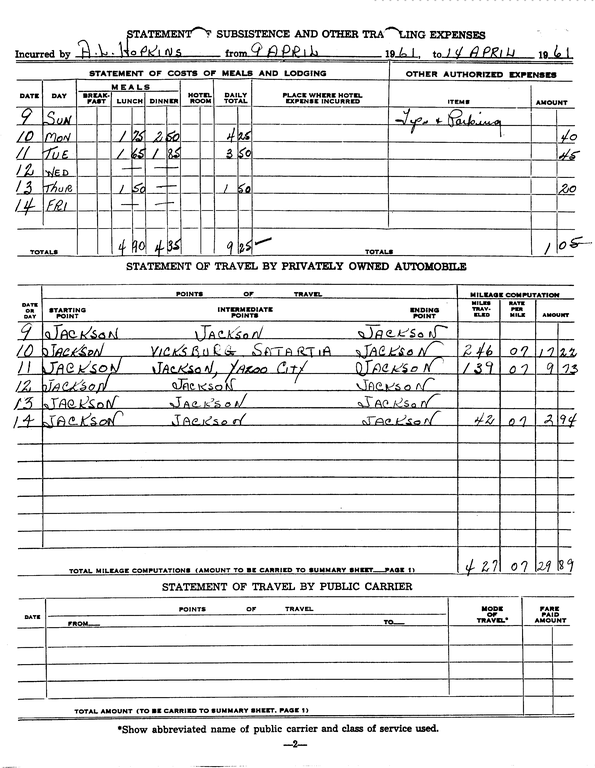 STATEMENT SUBSISTENCE AND OTHER TRA LING EXPENSES
Incurred by A.L. HOPKINS from 9 APRIL 1961, to 14 APRIL 1961
STATEMENT OF COSTS OF MEALS AND LODGING OTHER AUTHORIZED EXPENSES
DATE DAY MEALS BREAK-FAST LUNCH DINNER HOTEL ROOM DAILY TOTAL PLACE WHERE HOTEL EXPENSE INCURRED ITEMS AMOUNT
9 SUN Tips & Parking
10 MON 1 75 2 50 4 25 40
11 TUE 1 65 1 85 3 50 45
12 WED — —
13 THUR 1 50 — 1 50 20
14 FRI — —
TOTALS 4 90 4 35 9 25 TOTALS 1 05
STATEMENT OF TRAVEL BY PRIVATELY OWNED AUTOMOBILE
DATE OR DAY POINTS OF TRAVEL MILEAGE COMPUTATION
STARTING POINT INTERMEDIATE POINTS ENDING POINT MILES TRAV-ELED RATE PER MILE AMOUNT
9 JACKSON JACKSON JACKSON
10 JACKSON VICKSBURG SATARTIA JACKSON 246 07 17 22
11 JACKSON JACKSON, YAZOO CITY JACKSON 139 07 9 73
12 JACKSON JACKSON JACKSON
13 JACKSON JACKSON JACKSON
14 JACKSON JACKSON JACKSON 42 07 2 94
TOTAL MILEAGE COMPUTATIONS (AMOUNT TO BE CARRIED TO SUMMARY SHEET PAGE 1) 427 07 29 89
STATEMENT OF TRAVEL BY PUBLIC CARRIER
DATE POINTS OF TRAVEL MODE OF TRAVEL* FARE PAID AMOUNT
FROM TO
TOTAL AMOUNT (TO BE CARRIED TO SUMMARY SHEET, PAGE 1)
*Show abbreviated name of public carrier and class of service used.
—2—